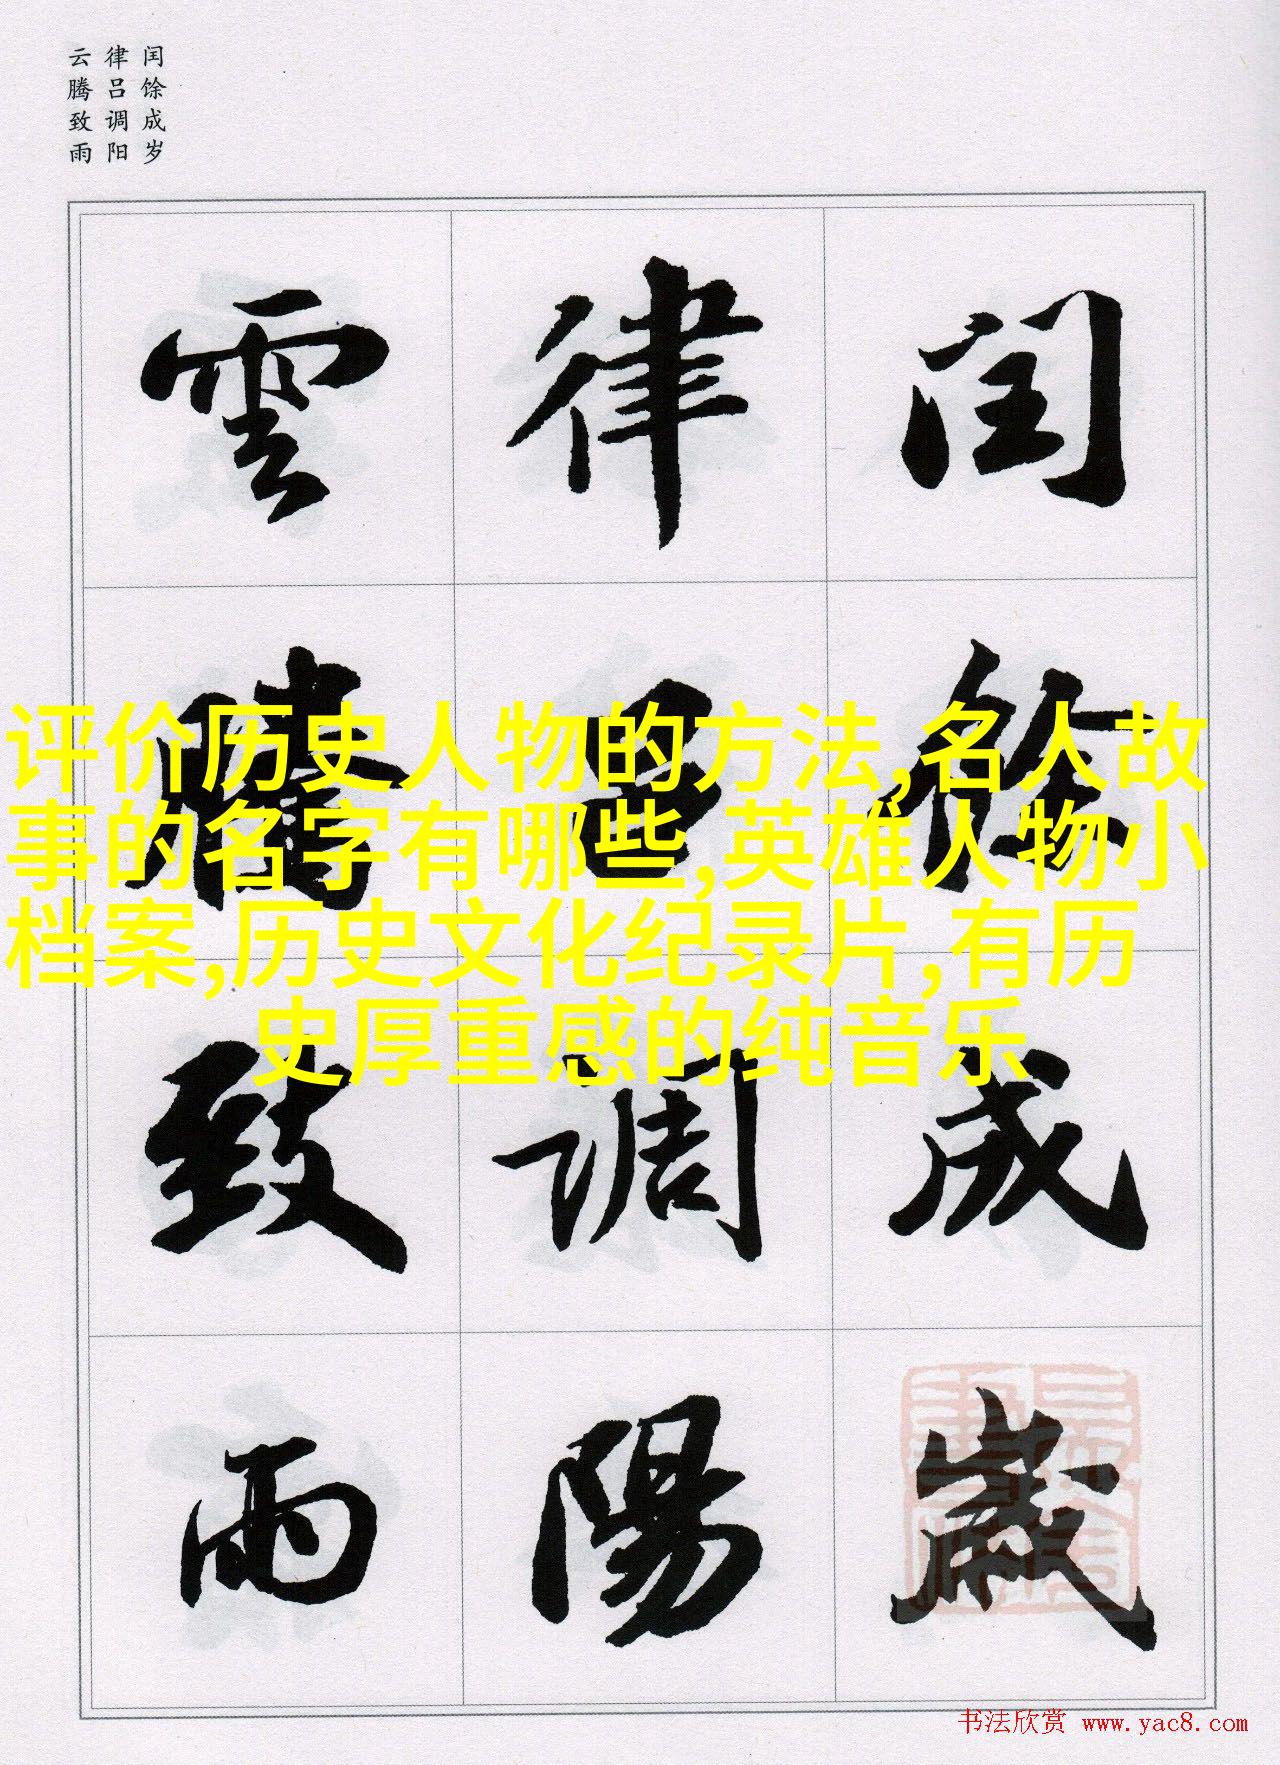 闰馀成岁
律吕调阳
云腾致雨
閏餘成歲
律吕調陽
雲騰致雨
评价历史人物的方法,名人故
事的名字有哪些,英雄人物小
档案,历史文化纪录片,有历
史厚重感的纯音乐
书法欣赏 www.yac8.com